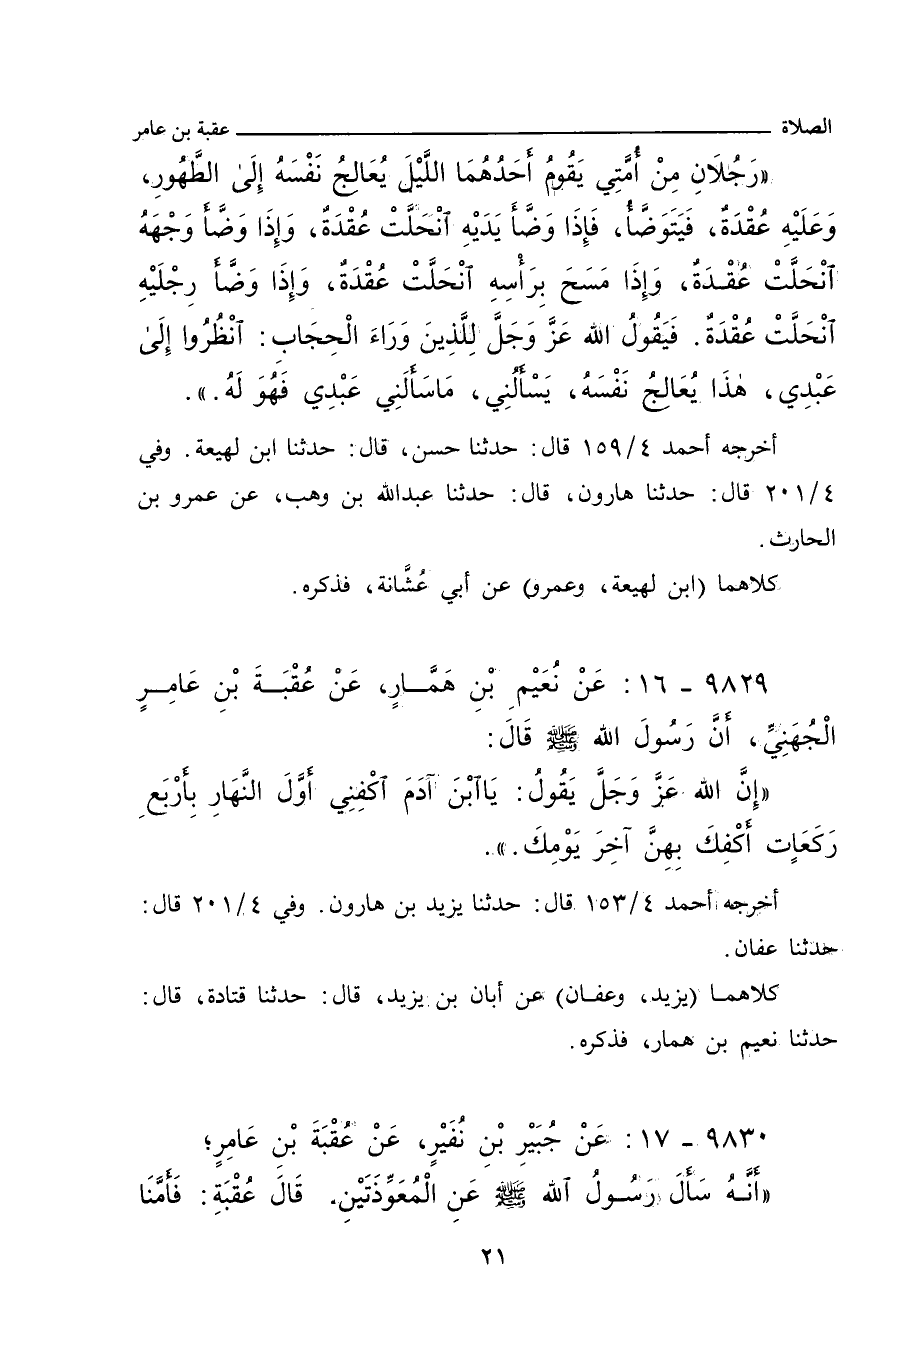 الصلاة ــــــــــــــــــــ عقبة بن عامر
«رَجُلَانِ مِنْ أُمَّتِي يَقُومُ أَحَدُهُمَا اللَّيْلَ يُعَالِجُ نَفْسَهُ إِلَىٰ الطَّهُورِ،
وَعَلَيْهِ عُقْدَةٌ، فَيَتَوَضَّأُ، فَإِذَا وَضَّأَ يَدَيْهِ ٱنْحَلَّتْ عُقْدَةٌ، وَإِذَا وَضَّأَ وَجْهَهُ
ٱنْحَلَّتْ عُقْدَةٌ، وَإِذَا مَسَحَ بِرَأْسِهِ ٱنْحَلَّتْ عُقْدَةٌ، وَإِذَا وَضَّأَ رِجْلَيْهِ
ٱنْحَلَّتْ عُقْدَةٌ. فَيَقُولُ الله عَزَّ وَجَلَّ لِلَّذِينَ وَرَاءَ الْحِجَابِ: ٱنْظُرُوا إِلَىٰ
عَبْدِي، هٰذَا يُعَالِجُ نَفْسَهُ، يَسْأَلُنِي، مَاسَأَلَنِي عَبْدِي فَهُوَ لَهُ.».
أخرجه أحمد ٤/١٥٩ قال: حدثنا حسن، قال: حدثنا ابن لهيعة. وفي
٤/٢٠١ قال: حدثنا هارون، قال: حدثنا عبدالله بن وهب، عن عمرو بن
الحارث.
كلاهما (ابن لهيعة، وعمرو) عن أبي عُشَّانة، فذكره.
٩٨٢٩ - ١٦: عَنْ نُعَيْمِ بْنِ هَمَّارٍ، عَنْ عُقْبَةَ بْنِ عَامِرٍ
الْجُهَنِيِّ، أَنَّ رَسُولَ الله ﷺ قَالَ:
«إِنَّ الله عَزَّ وَجَلَّ يَقُولُ: يَاٱبْنَ آدَمَ ٱكْفِنِي أَوَّلَ النَّهَارِ بِأَرْبَعِ
رَكَعَاتٍ أَكْفِكَ بِهِنَّ آخِرَ يَوْمِكَ.».
أخرجه أحمد ٤/١٥٣ قال: حدثنا يزيد بن هارون. وفي ٤/٢٠١ قال:
حدثنا عفان.
كلاهما (يزيد، وعفان) عن أبان بن يزيد، قال: حدثنا قتادة، قال:
حدثنا نعيم بن همار، فذكره.
٩٨٣٠ - ١٧: عَنْ جُبَيْرِ بْنِ نُفَيْرٍ، عَنْ عُقْبَةَ بْنِ عَامِرٍ؛
«أَنَّهُ سَأَلَ رَسُولُ ٱلله ﷺ عَنِ الْمُعَوِّذَتَيْنِ. قَالَ عُقْبَةِ: فَأَمَّنَا
٢١